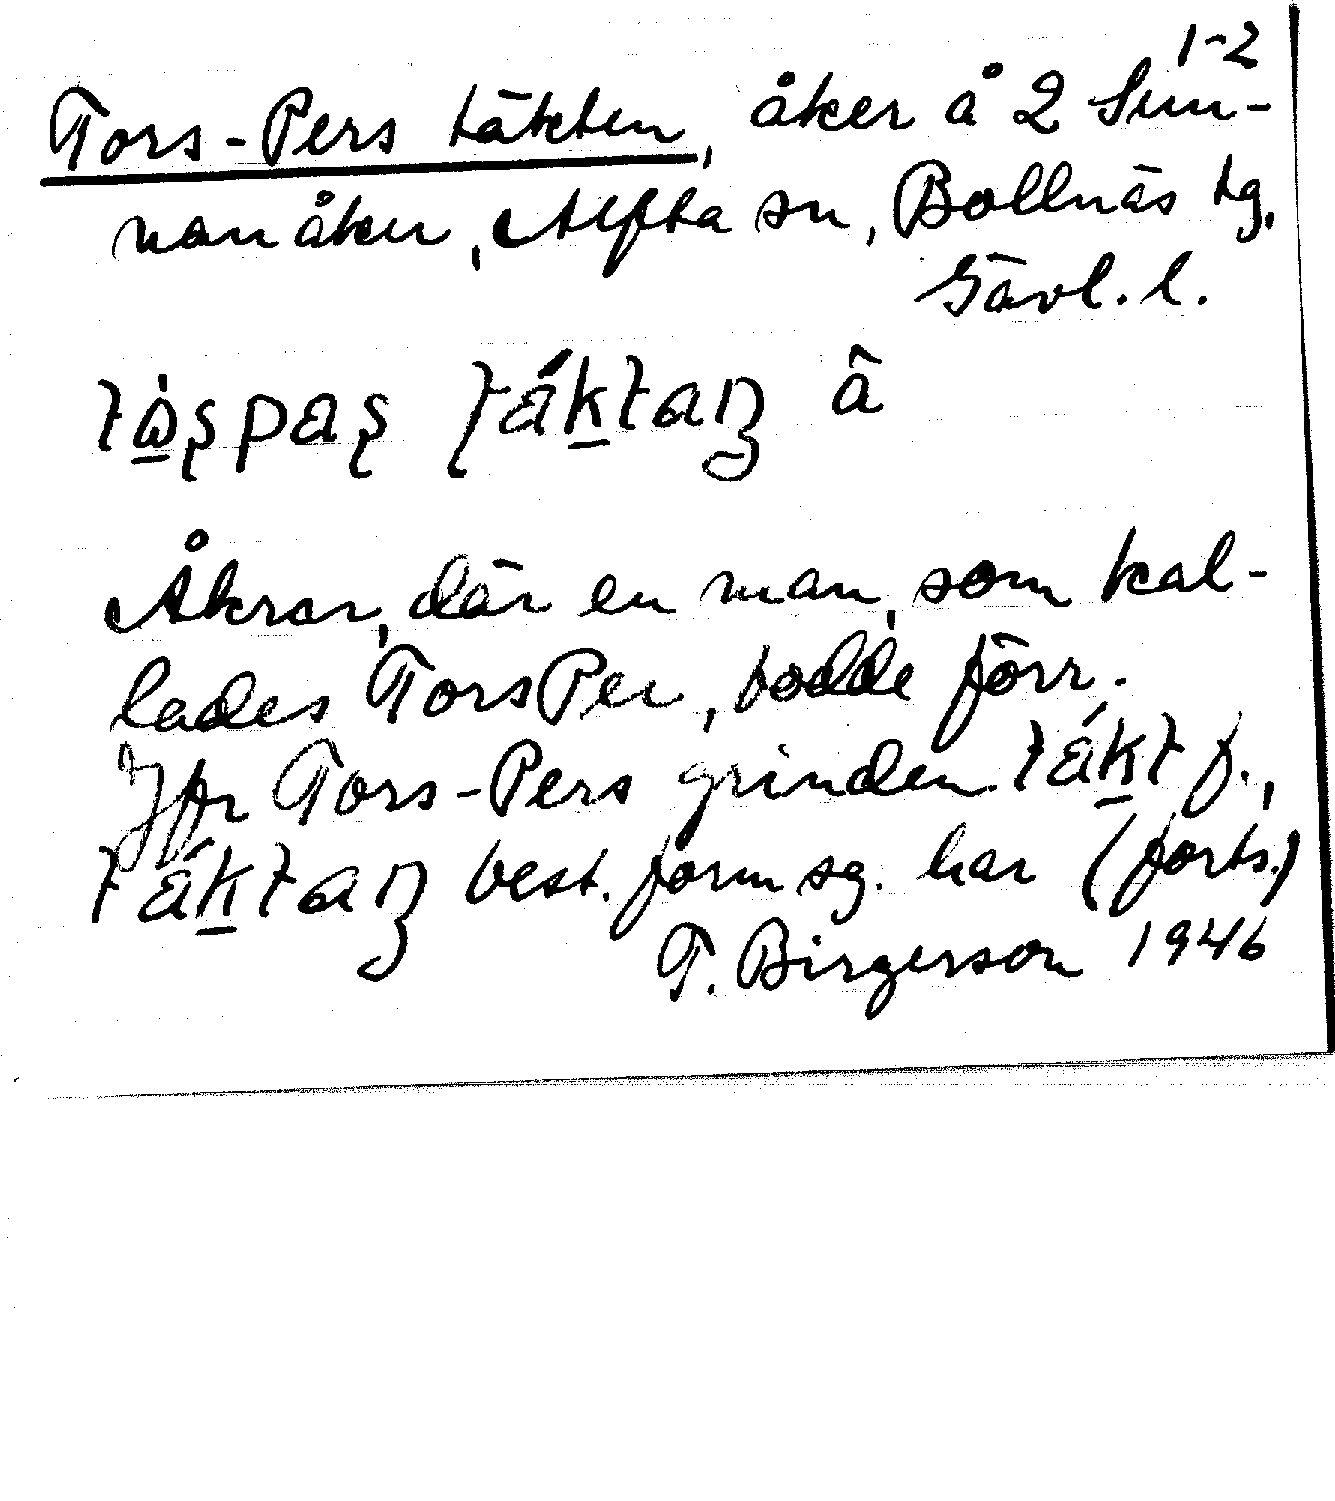 1-2
Tors-Pers täkten, åker å 2 Sun-
nanåker, Alfta sn, Bollnäs tg,
Gävl. l.
å
Åkrar, där en man, som kal-
lades TorsPer, bodde förr.
Jfr Tors-Pers grinden. f.,
best. form sg. har (forts.)
T. Birgerson 1946